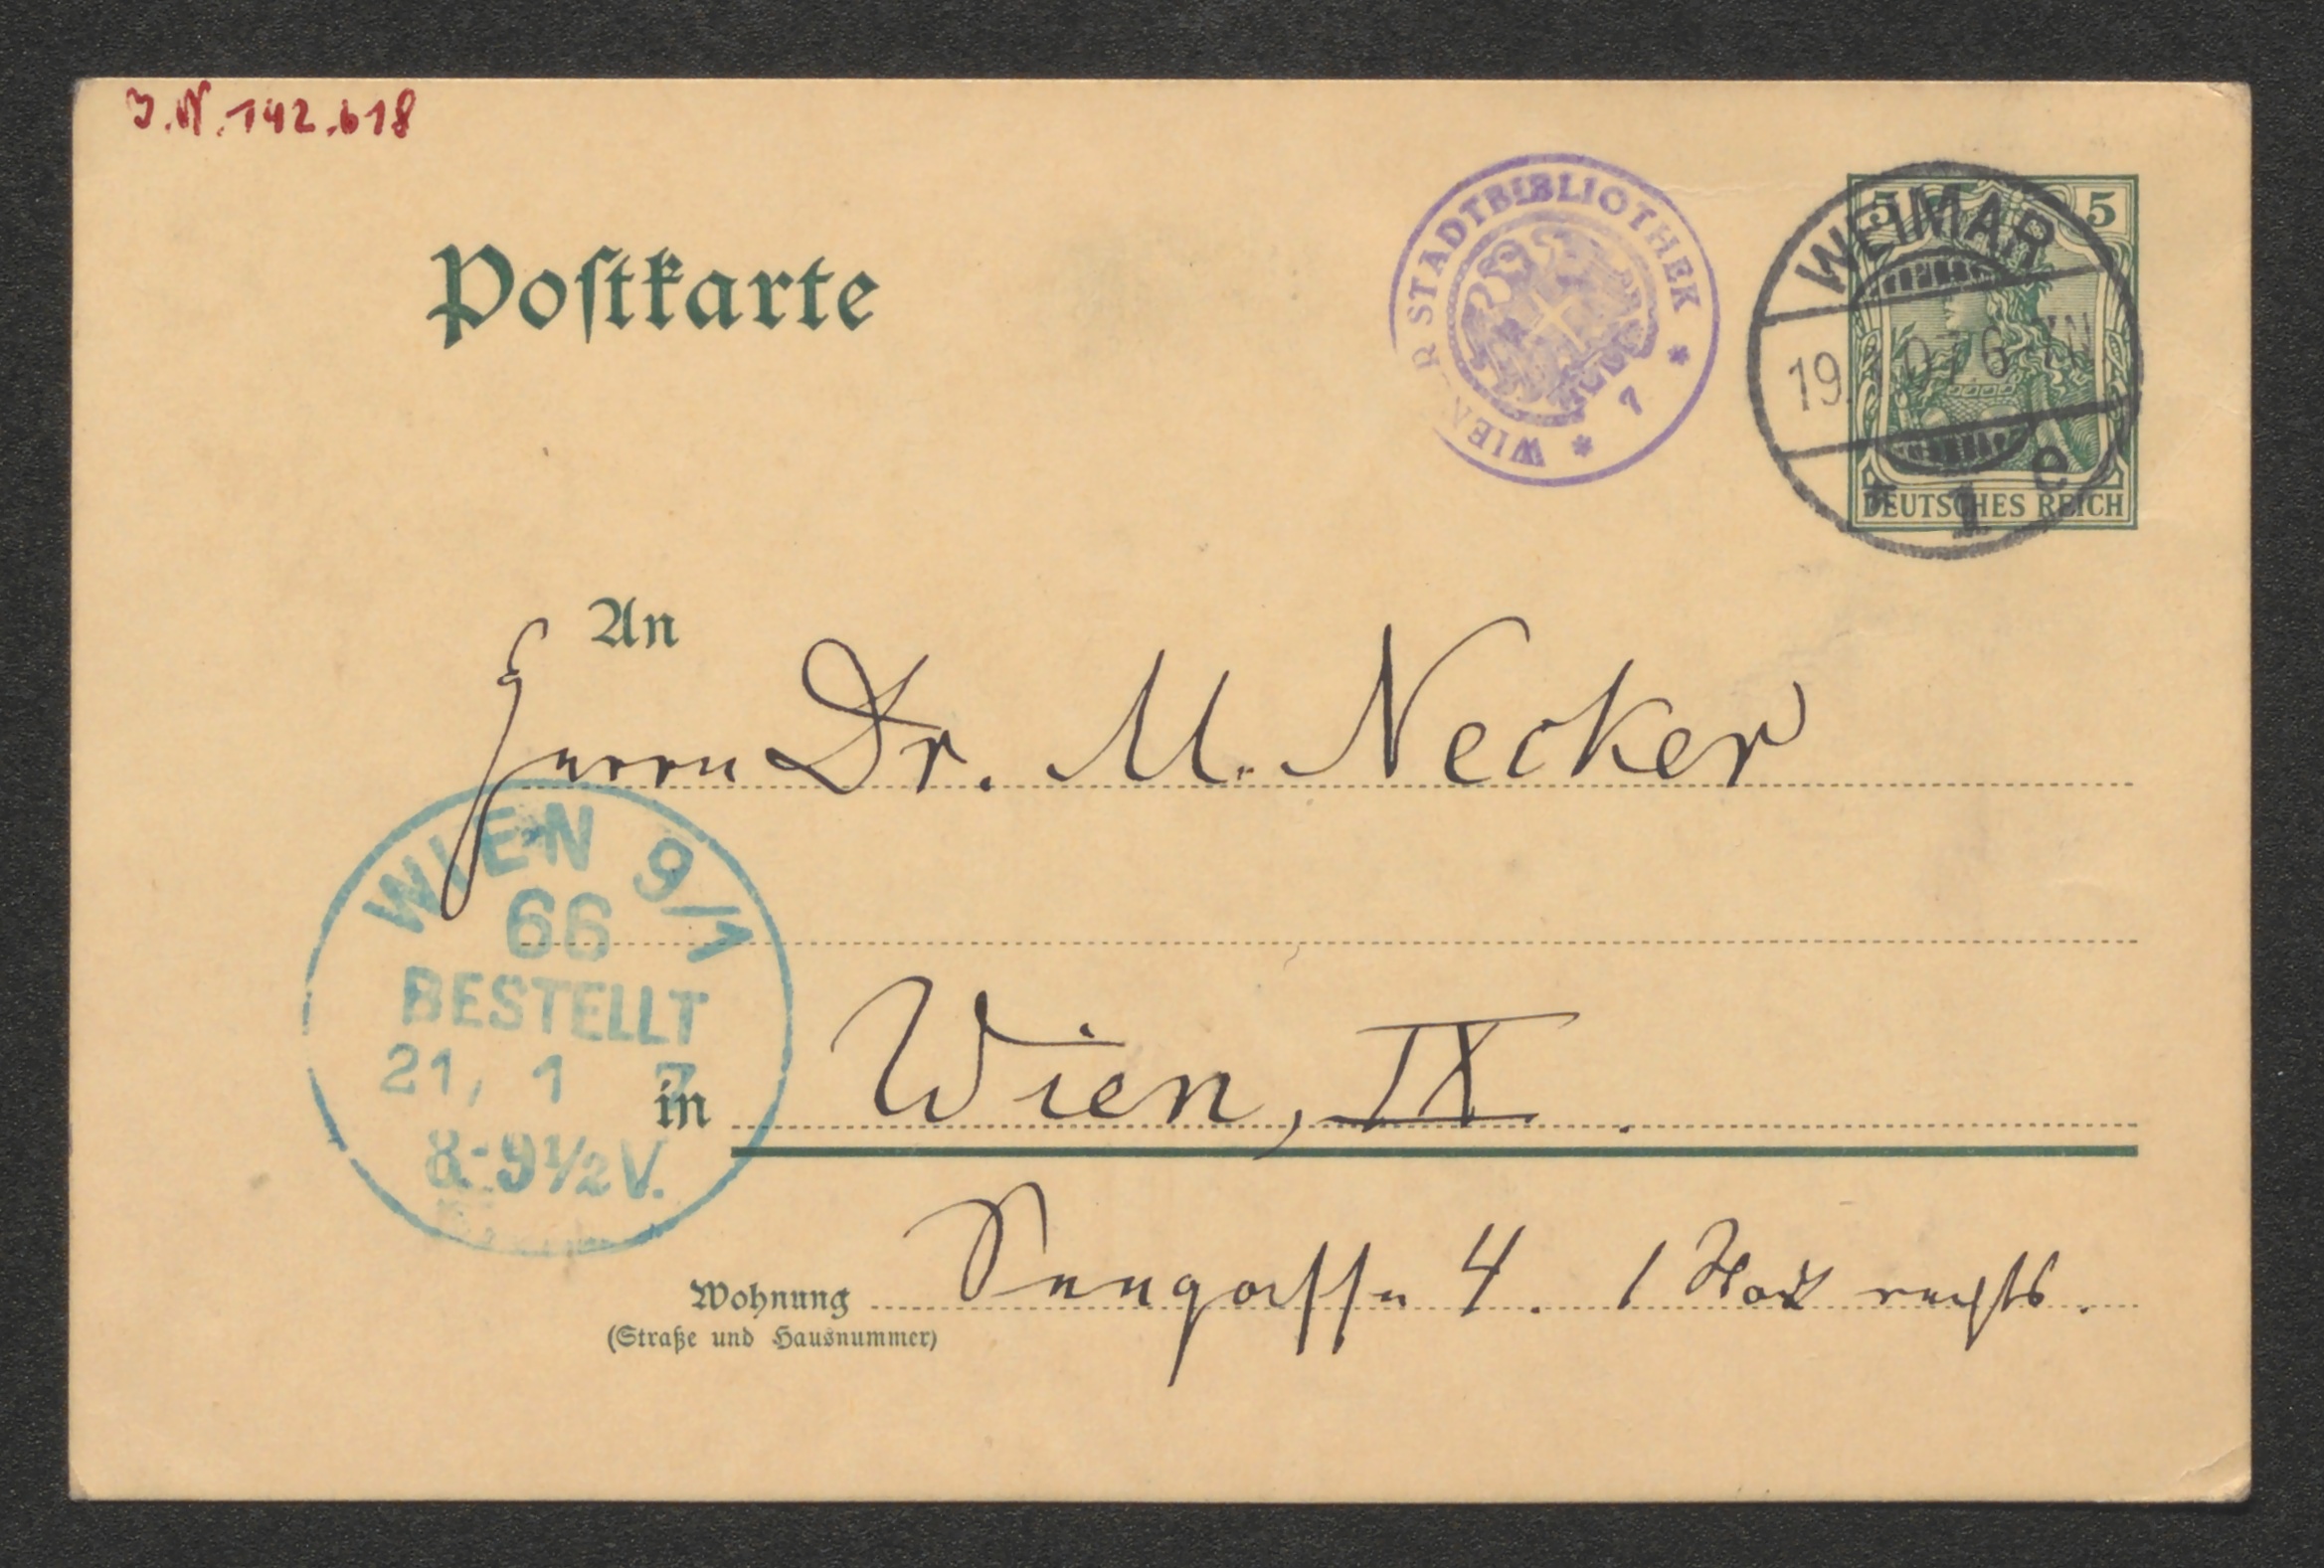 J.N. 142.618
Postkarte
WIENER STADTBIBLIOTHEK * 7 *
5 5
WEIMAR
19. 1. 07. 6-7N
* 1 e
DEUTSCHES REICH
An
Herrn Dr. M. Necker
WIEN 9/1
66
BESTELLT
21, 1 7
8-9½V.
in Wien, IX.
Wohnung Seegasse 4. 1 Stock rechts.
(Straße und Hausnummer)